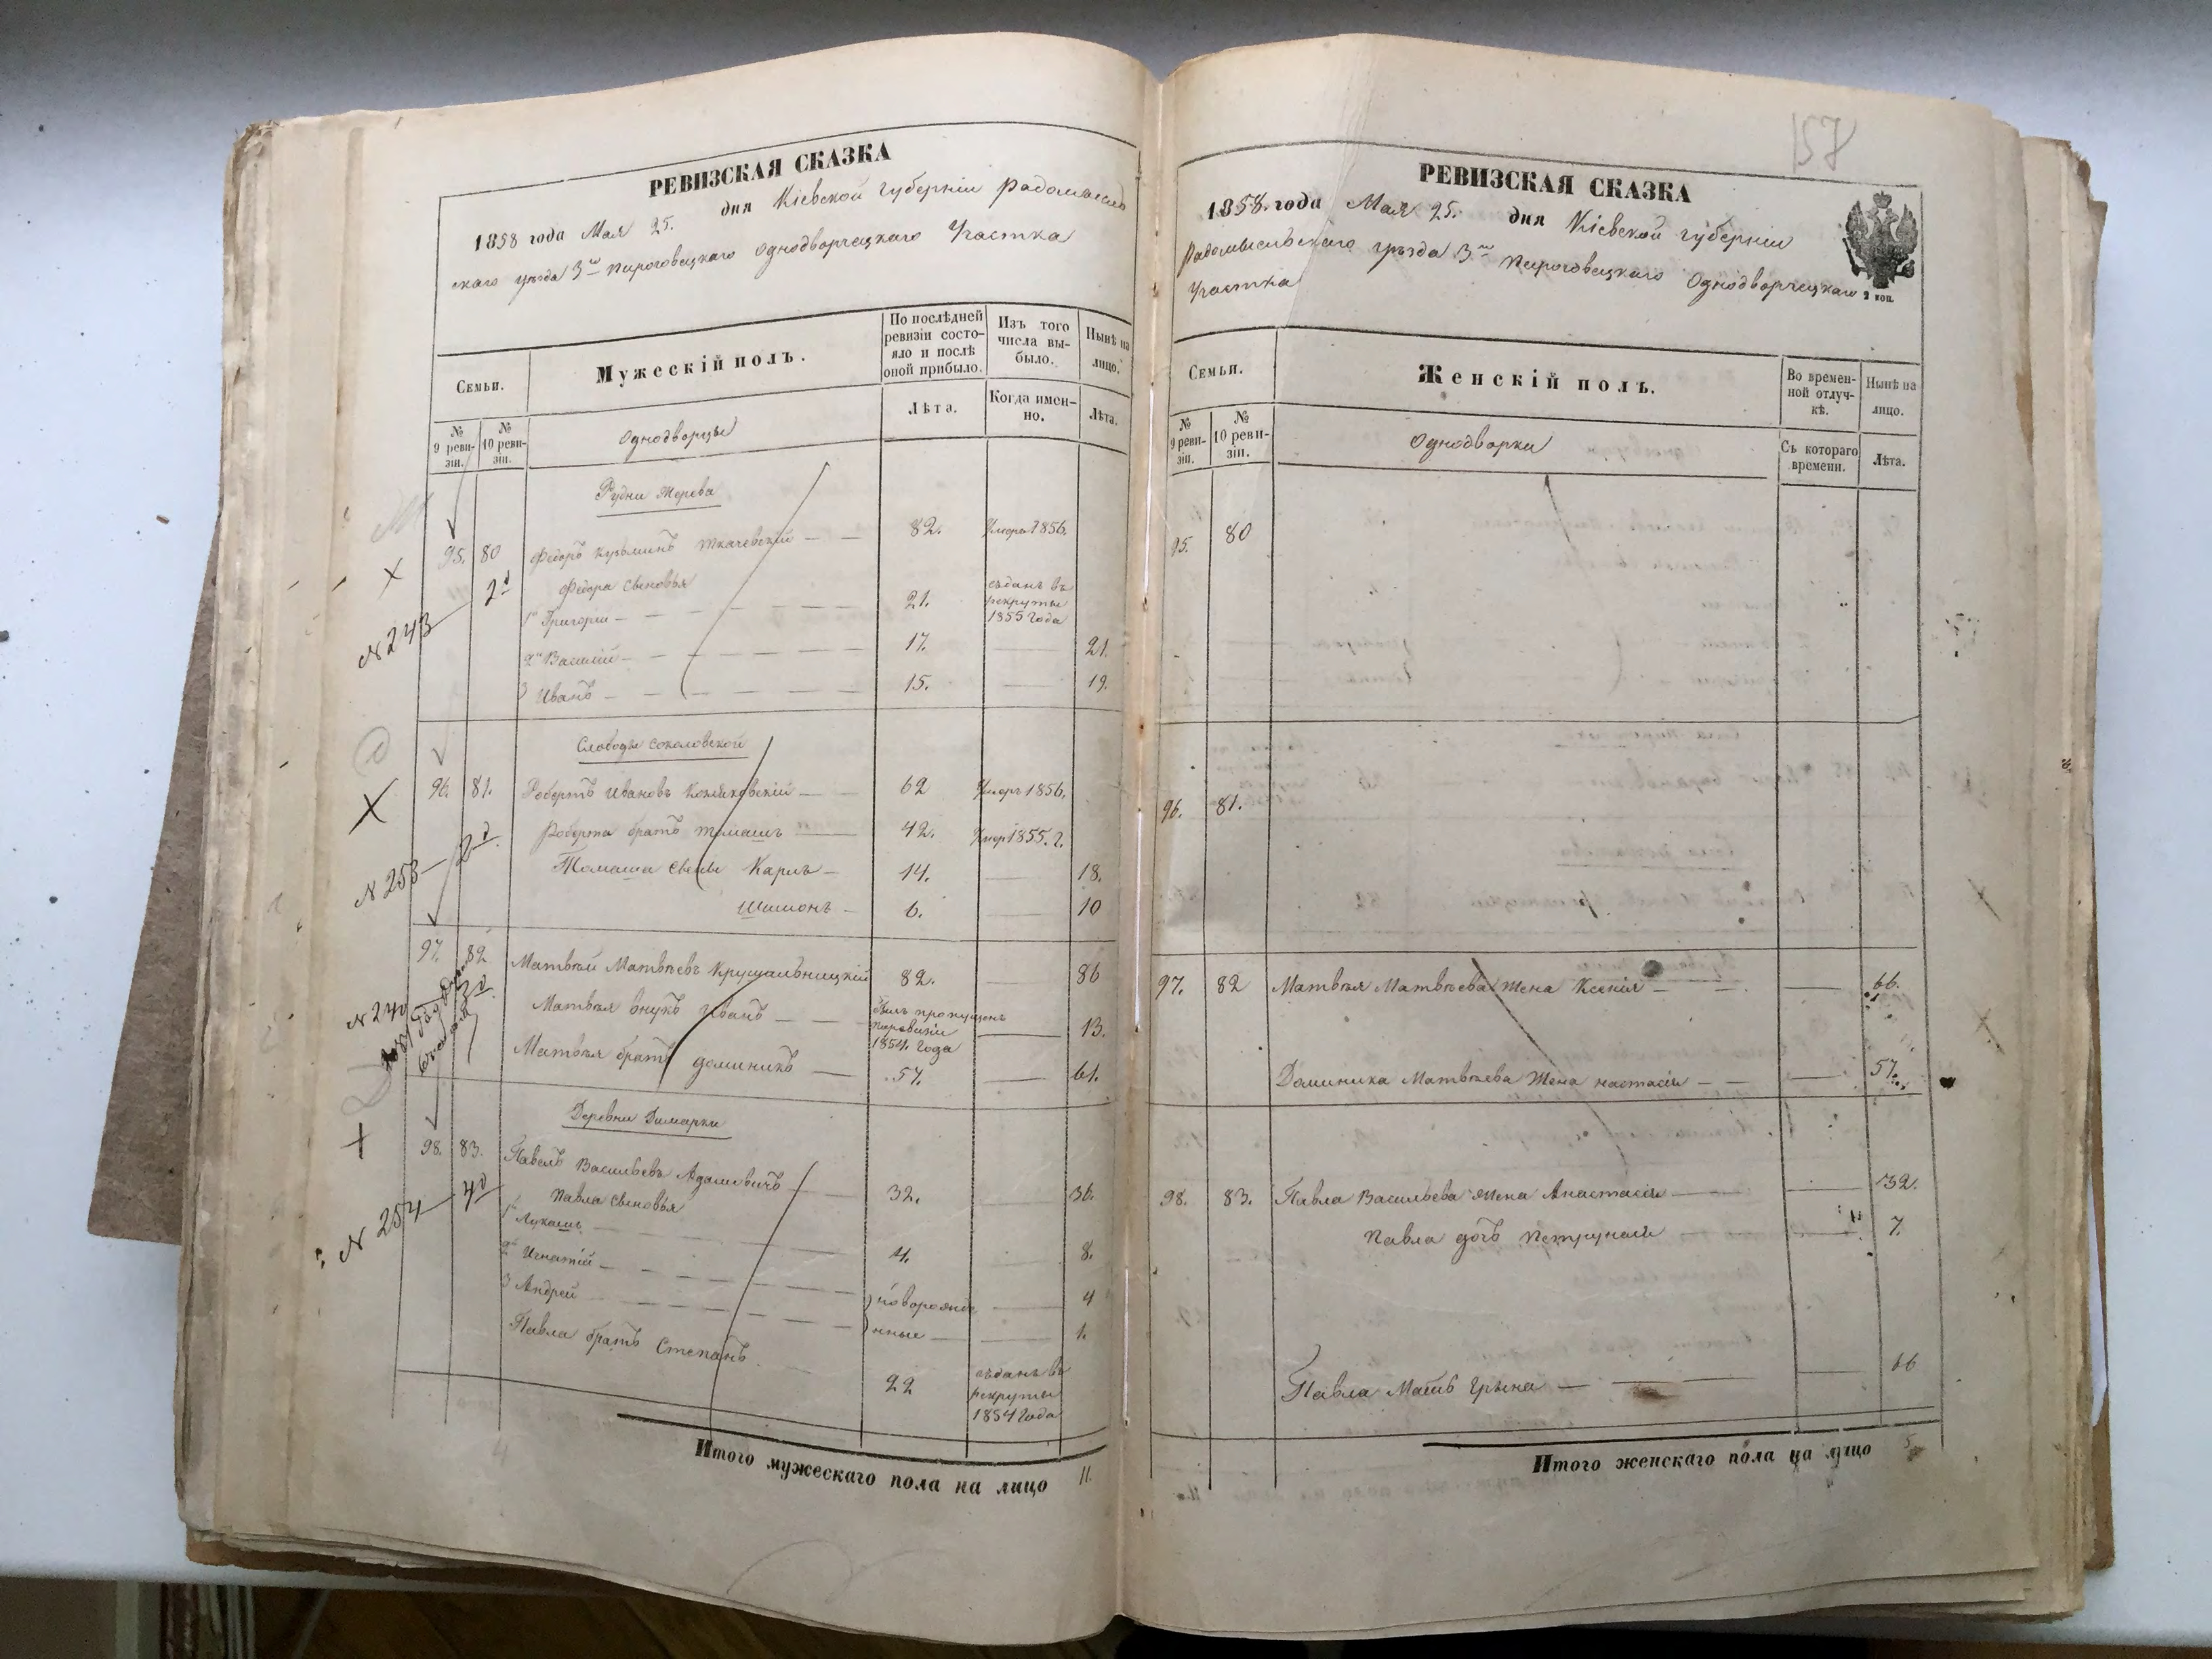 РЕВИЗСКАЯ СКАЗКА
1858 года Мая 25. дня Кіевской губерніи Радомысль
скаго уѣзда 3го Пироговецкаго Однодворческаго Участка
Семьи.
Мужескій полъ.
По послѣдней
ревизіи состо-
яло и послѣ
оной прибыло.
Изъ того
числа вы-
было.
Нынѣ на
лицо.
№
9 реви-
зіи.
№
10 реви-
зіи.
Однодворцы
Лѣта.
Когда имен-
но.
Лѣта.
Рудни Мерева
95. 80 Федоръ Кузьминъ Ткачевскій 82. Умеръ 1856.
2й Федора сыновья
N 243
1й Григорій 21. сѣданъ въ
рекруты
1855 Года
2й Василій 17. 21.
3 Иванъ 15. 19.
Слободы Соколовской
96. 81. Робертъ Ивановъ 62 Умеръ 1856.
2й. Роберта братъ Томашъ 42. Умер 1855. г.
N 253
Томаша сыны Карлъ 14. 18.
Шимонъ 6. 10
97. 82 Матвѣй Матвѣевъ Крушальницкій 82. 86
N 240 3й.
Матвѣя внукъ Иванъ былъ пропущен
по ревизіи
1854. Года 13.
Матвѣя братъ Доминикъ 57. 61.
Деревни Димарки
98. 83. Павелъ Васильевъ Адамовичъ 32. 36.
N 254 4й
Павла сыновья
1й Лукашъ 4. 8.
2й Игнатій новорожде 4
3 Андрей нные 1.
Павла братъ Степанъ 22 сѣданъ въ
рекруты
1854 Года
Итого мужескаго пола на лицо 11.
157
РЕВИЗСКАЯ СКАЗКА
1858. года Мая 25. дня Кіевской губерніи
Радомысльскаго уѣзда 3го Пироговецкаго Однодворческаго
Участка
2 коп.
Семьи.
Женскій полъ.
Во времен-
ной отлуч-
кѣ.
Нынѣ на
лицо.
№
9 реви-
зіи.
№
10 реви-
зіи.
Однодворки
Съ котораго
времени.
Лѣта.
95. 80
96. 81.
97. 82 Матвѣя Матвѣева Жена Ксенія 66.
Доминика Матвѣева Жена Настасія 57.
98. 83. Павла Васильева Жена Анастасія 32.
Павла дочь Петрунеля 7.
Павла Мать Ирина 66
Итого женскаго пола на лицо 5